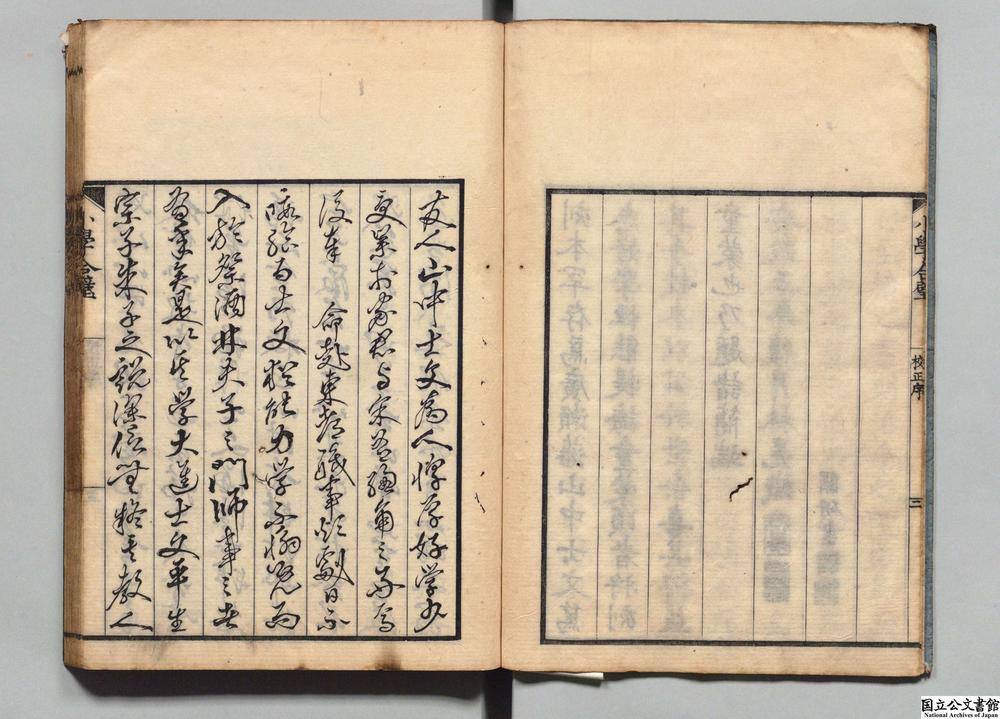 小學合璧
校正序
三
友人山中士文為人惇厚好学少
受業於家君与宗吾總角之交焉
後奉 命赴東都職事煩劇日不
暇給而士文猶能力学不惰既而
入於祭酒林夫子之門師事之者
有年矣是以其学大進士文平生
宗子朱子之説深信無疑其教人
小學合璧
国立公文書館
National Archives of Japan